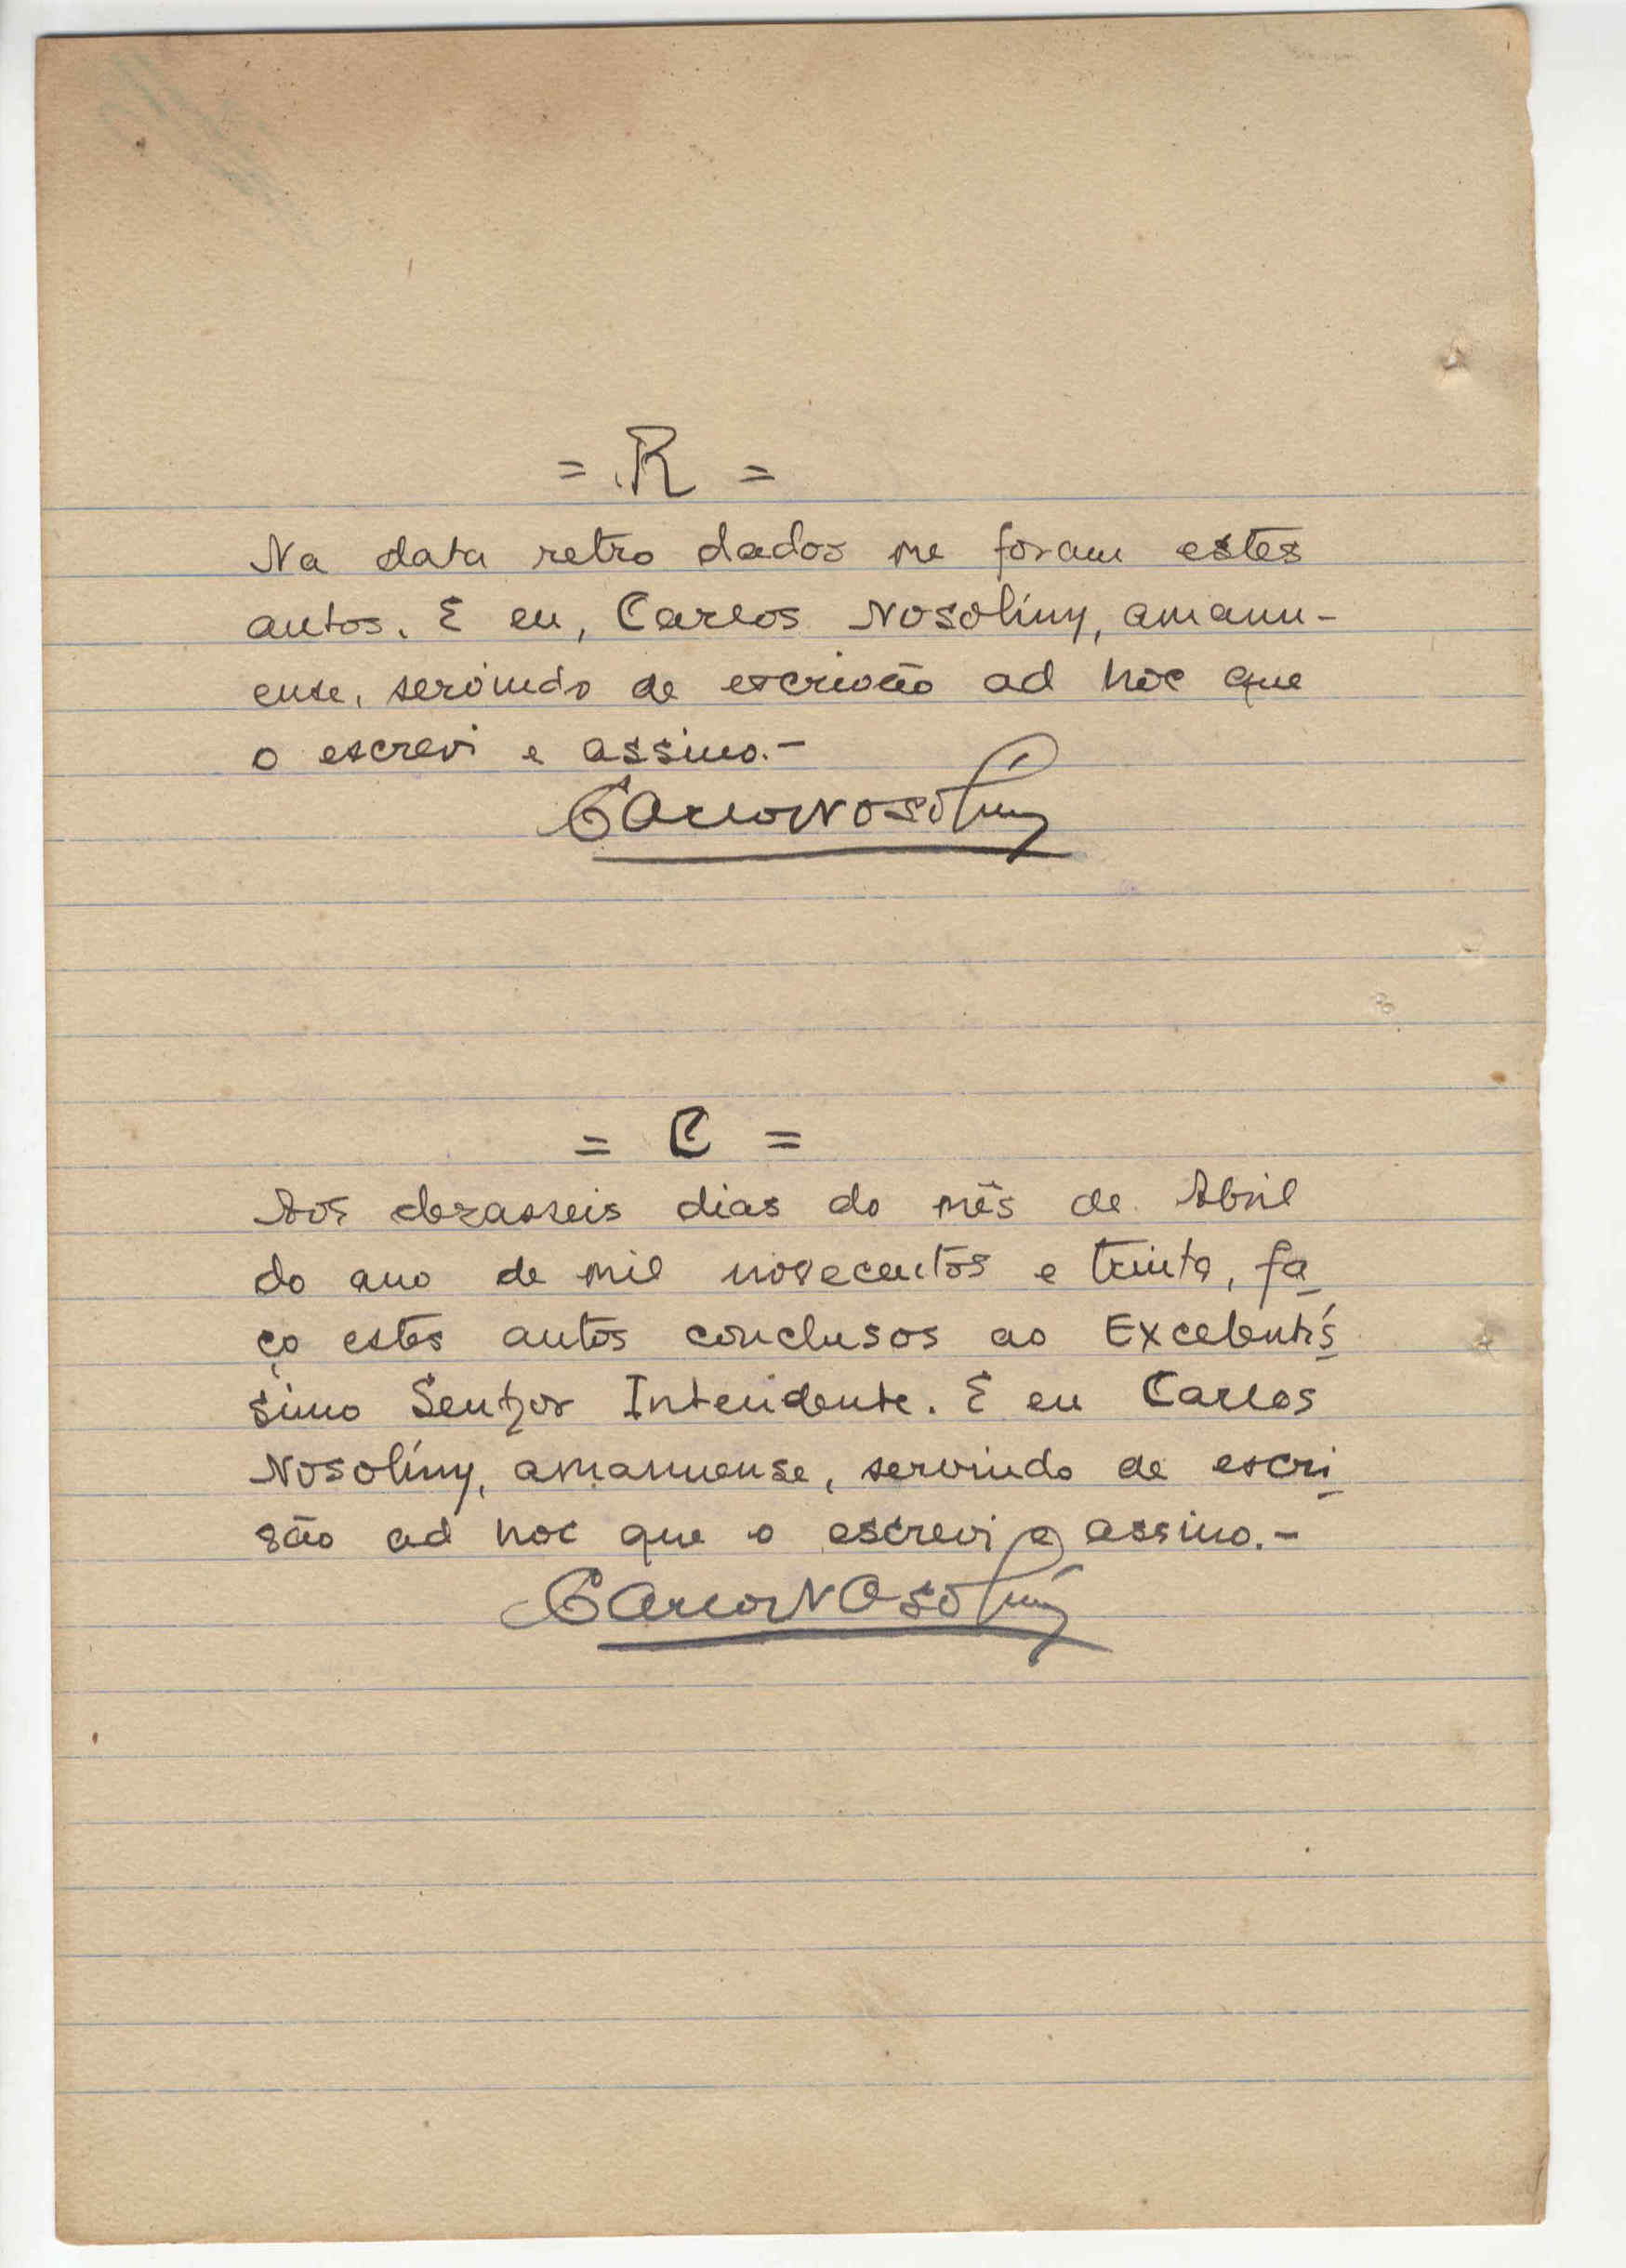 = R =
Na data retro dados me foram estes
autos. E eu, Carlos Nosolíny, amanu-
ense, servindo de escrivão ad hoc que
o escrevi e assino.-
Carlos Nosolíny
= C =
Aos dezasseis dias do mês de Abril
do ano de mil novecentos e trinta, fa
ço estes autos conclusos ao Excelentís
simo Senhor Intendente. E eu Carlos
Nosolíny, amanuense, servindo de escri
vão ad hoc que o escrevi e assino.-
Carlos Nosolíny